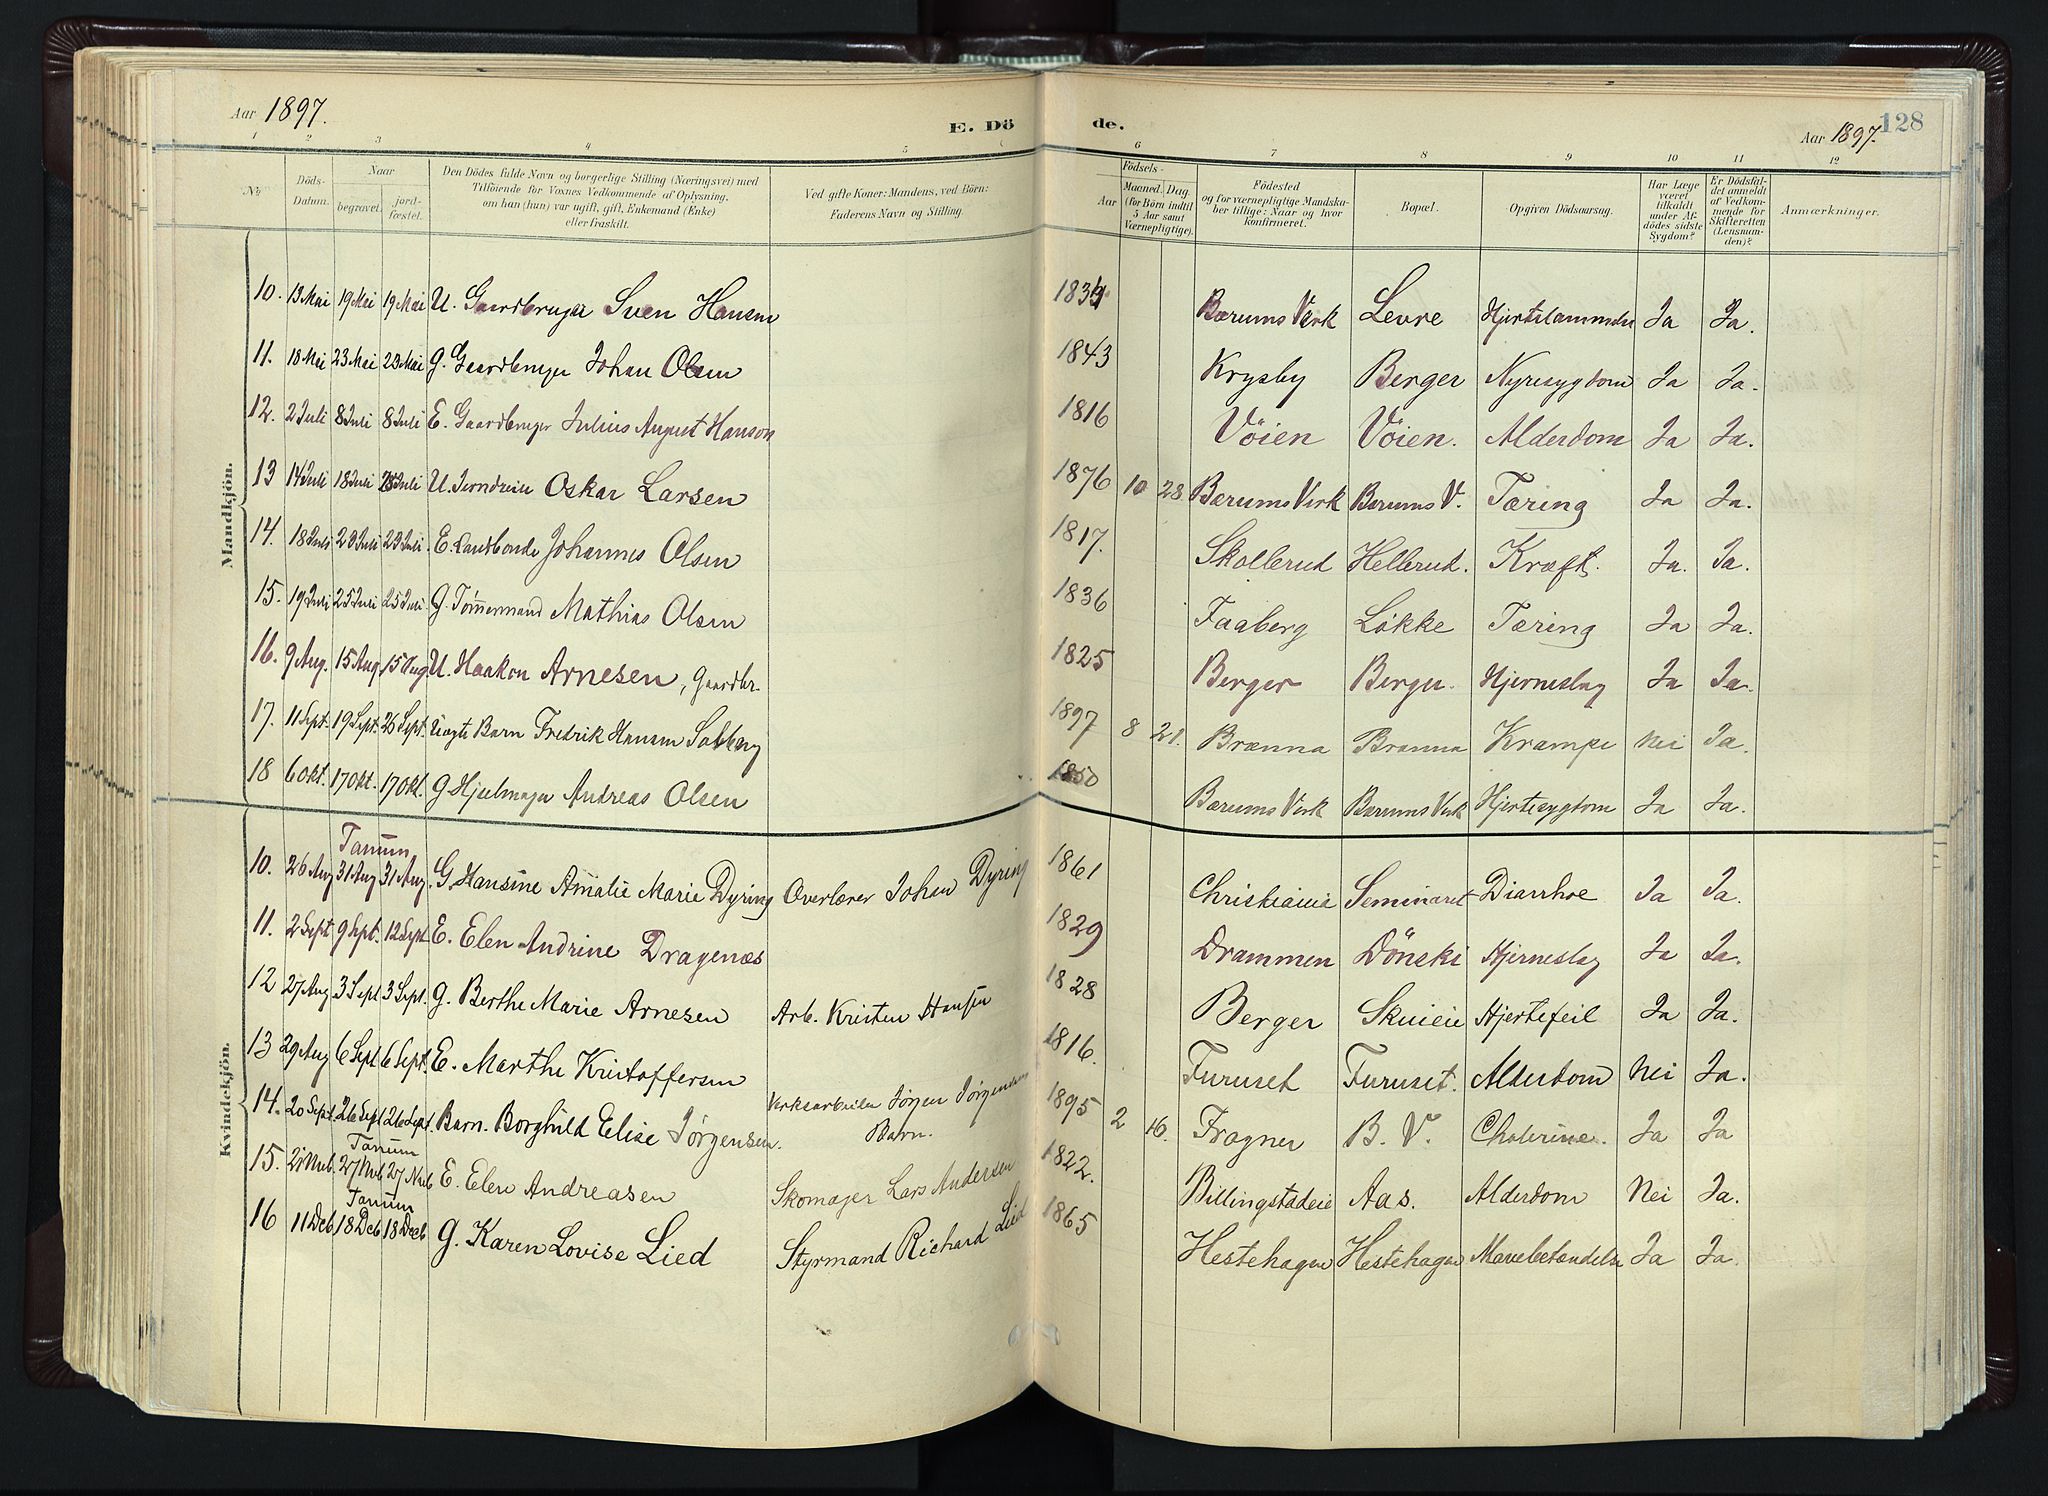 Aar 1897.
E. Dö de.
128
Aar 1897.
1 2 3 4 5 6 7 8 9 10 11 12
No
Döds-Datum.
Naar
begravet.
jord-fæstet.
Den Dödes fulde Navn og borgerlige Stilling (Næringsvei) med
Tilföiende for Voxnes Vedkommende af Oplysning,
om han (hun) var ugift, gift, Enkemand (Enke)
eller fraskilt.
Ved gifte Koner: Mandens, ved Börn:
Faderens Navn og Stilling.
Födsels-
Aar
Maaned. Dag.
(for Börn indtil
5 Aar samt
Værnepligtige).
Födested
og for værnepligtige Mandska-
ber tillige: Naar og hvor
konfirmeret.
Bopæl.
Opgiven Dödsaarsag.
Har Læge
været
tilkaldt
under Af-
dödes sidste
Sygdom?
Er Dödsfal-
det anmeldt
af Vedkom-
mende for
Skifteretten
(Lensman-
den)?
Anmærkninger.
Mandkjön.
10. 13 Mai 19 Mai 19 Mai U. Gaardbruger Sven Hansen Bærums Verk Levre Ja Ja.
11. 18 Mai 23 Mai 23 Mai G. Gaardbruger Johan Olsen 1843 Krysby Berger Nyresygdom Ja Ja.
12. 2 Juli 8 Juli 8 Juli E. Gaardbruger Julius August Hanson 1816 Vöien Vöien. Alderdom Ja Ja.
13 14 Juli 18 Juli 25 Juli U. Oskar Larsen 1876 10 28 Bærums Verk Bærums V. Tæring Ja Ja.
14. 18 Juli 23 Juli 23 Juli E. Landbonde Johannes Olsen 1817. Skollerud Hellerud. Kræft. Ja. Ja.
15. 19 Juli 25 Juli 25 Juli G. Tömmermand Mathias Olsen 1836 Faaberg Løkke Tæring Ja Ja.
16. 9 Aug. 15 Aug 15 Aug U. Haakon Arnesen, Gaardbr. 1825 Berger Berger. Hjerneslag Ja Ja.
17. 11 Sept. 19 Sept. 26 Sept. Uægte Barn Fredrik Hansen Solberg 1897 8 21. Brænna Brænna Krampe Nei Ja.
18 6 Okt. 17 Okt. 17 Okt. G Hjulmager Andreas Olsen 1850 Bærums Verk Bærums Verk Hjertesygdom Ja Ja.
Kvindekjön.
Tanum
10. 26 Aug 31 Aug 31 Aug. G. Hansine Amalie Marie Dyring Overlærer Johan Dyring 1861 Christiania Seminaret Diarrhoe Ja Ja.
11. 2 Sept 9 Sept. 12 Sept. E. Elen Andrine Dragenæs 1829 Drammen Dönski Hjerneslag Ja Ja.
12 27 Aug 3 Sept 3 Sept. G. Berthe Marie Arnesen Arb. Kristen Hansen 1828 Berger Skuieie Hjertefeil Ja Ja.
13 29 Aug 6 Sept 6 Sept. E. Marthe Kristoffersen 1816. Furuset Furuset. Alderdom Nei Ja.
14. 20 Sept. 26 Sept 26 Sept. Barn. Borghild Elise Jørgensen. Verksarbeider Jørgen Jørgensens
Barn. 1895 2 16. Frogner B. V. Cholerine. Ja Ja
Tanum
15. 21 Nvb. 27 Nvb 27 Nvb E. Elen Andreasen Skomager Lars Andersen 1822. Billingstadeie Aas. Alderdom Nei Ja.
Tanum
16 11 Dcb 18 Dcb 18 Decb G. Karen Lovise Lied Styrmand Richard Lied 1865 Hestehagen Hestehagen Mavebetændelse Ja Ja.